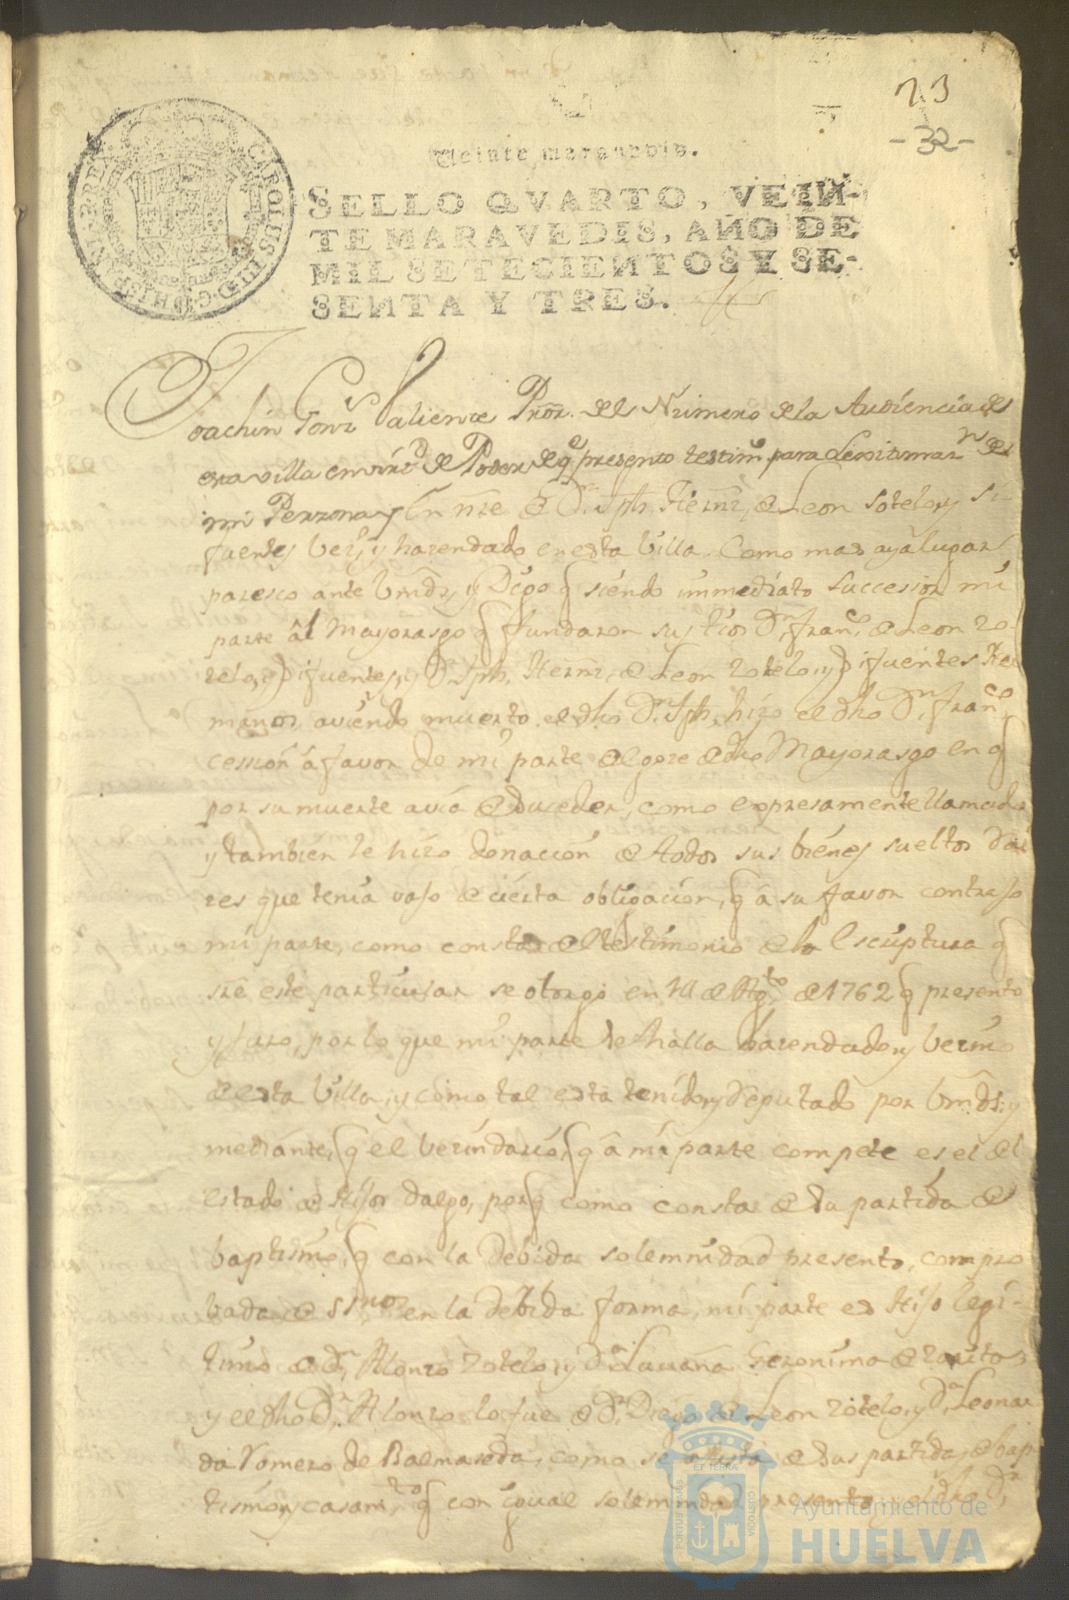 23
-32-
Veinte maravedis.
SELLO QVARTO, VEIN-
TE MARAVEDIS, AÑO DE
MIL SETECIENTOS Y SE-
SENTA Y TRES.
CAROLUS III D.G. HISPANIAR. REX
Joachin Gonz Valiente Pror. del Número de la Audiencia de
esta villa en virtd de Poder de q presento testimo para Lexitimar
mi Perzona, y En nre de Dn. Jph. Hernz, de Leon Sotelo, y Si-
fuentes Vezo, y hazendado en esta Villa. Como mas aya lugar
paresco ante Vmds, y Digo q siendo immediato Succesor mi
parte al Mayorasgo q fundaron sus tios Dn. Franco. de Leon So-
telo, e Sifuentes, y Dn. Jph. Hernz, de Leon Sotelo, y Sifuentes Her
manos, aviendo muerto el dho Dn. Jph, hizo el dho Dn. Franco.
cession á favor de mi parte del goze de dho Mayorasgo en q
por su muerte avia de suceder, como expresamente llamado
y tambien le hizo donacion de todos sus bienes sueltos
res que tenia vajo de cierta obligacion, q á su favor contrajo
mi parte, como consta del testimonio de la Escriptura q
sre este particular se otorgó en de Agto. de 1762 q presento
y juro, por lo que mi parte se halla hazendado, y Vezino
de esta Villa, y como tal esta tenido, y Deputado por Vmds: y
mediante, q el Vezindario, q á mi parte compete es el del
estado de Hijos dalgo, porq como consta de su partida de
baptismo, q con la Debida solemnidad presento, compro
bada de en la debida forma, mi parte es Hijo legi-
timo de Dn. Alonzo Sotelo, y Da. Geronima de
y el dho Dn. Alonzo lo fue de Dn. Diego de Leon Sotelo, y Da. Leonar
da Romero de Balmaseda, como se de sus partidas de bap
tismo, y casamto q con igual solemnidad presento, y el dho Dn.
Ayuntamiento de
HUELVA